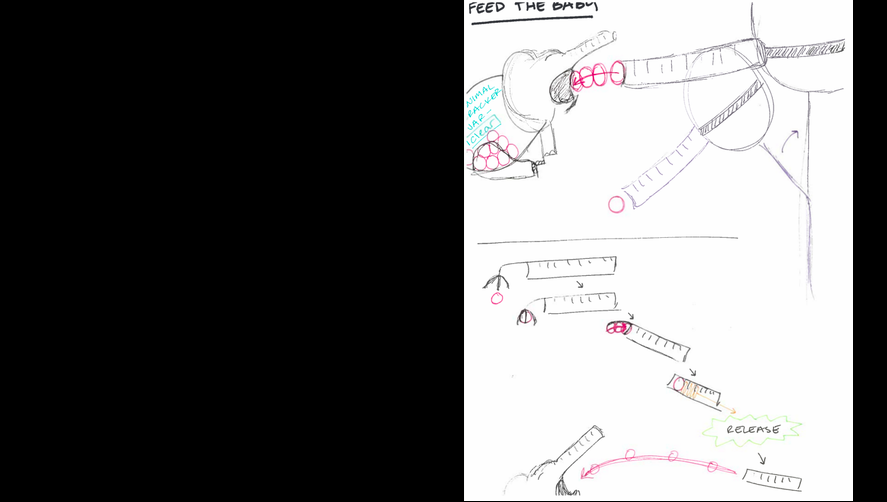 FEED THE BABY
NIMAL
RACKER
JAR-
clear
RELEASE